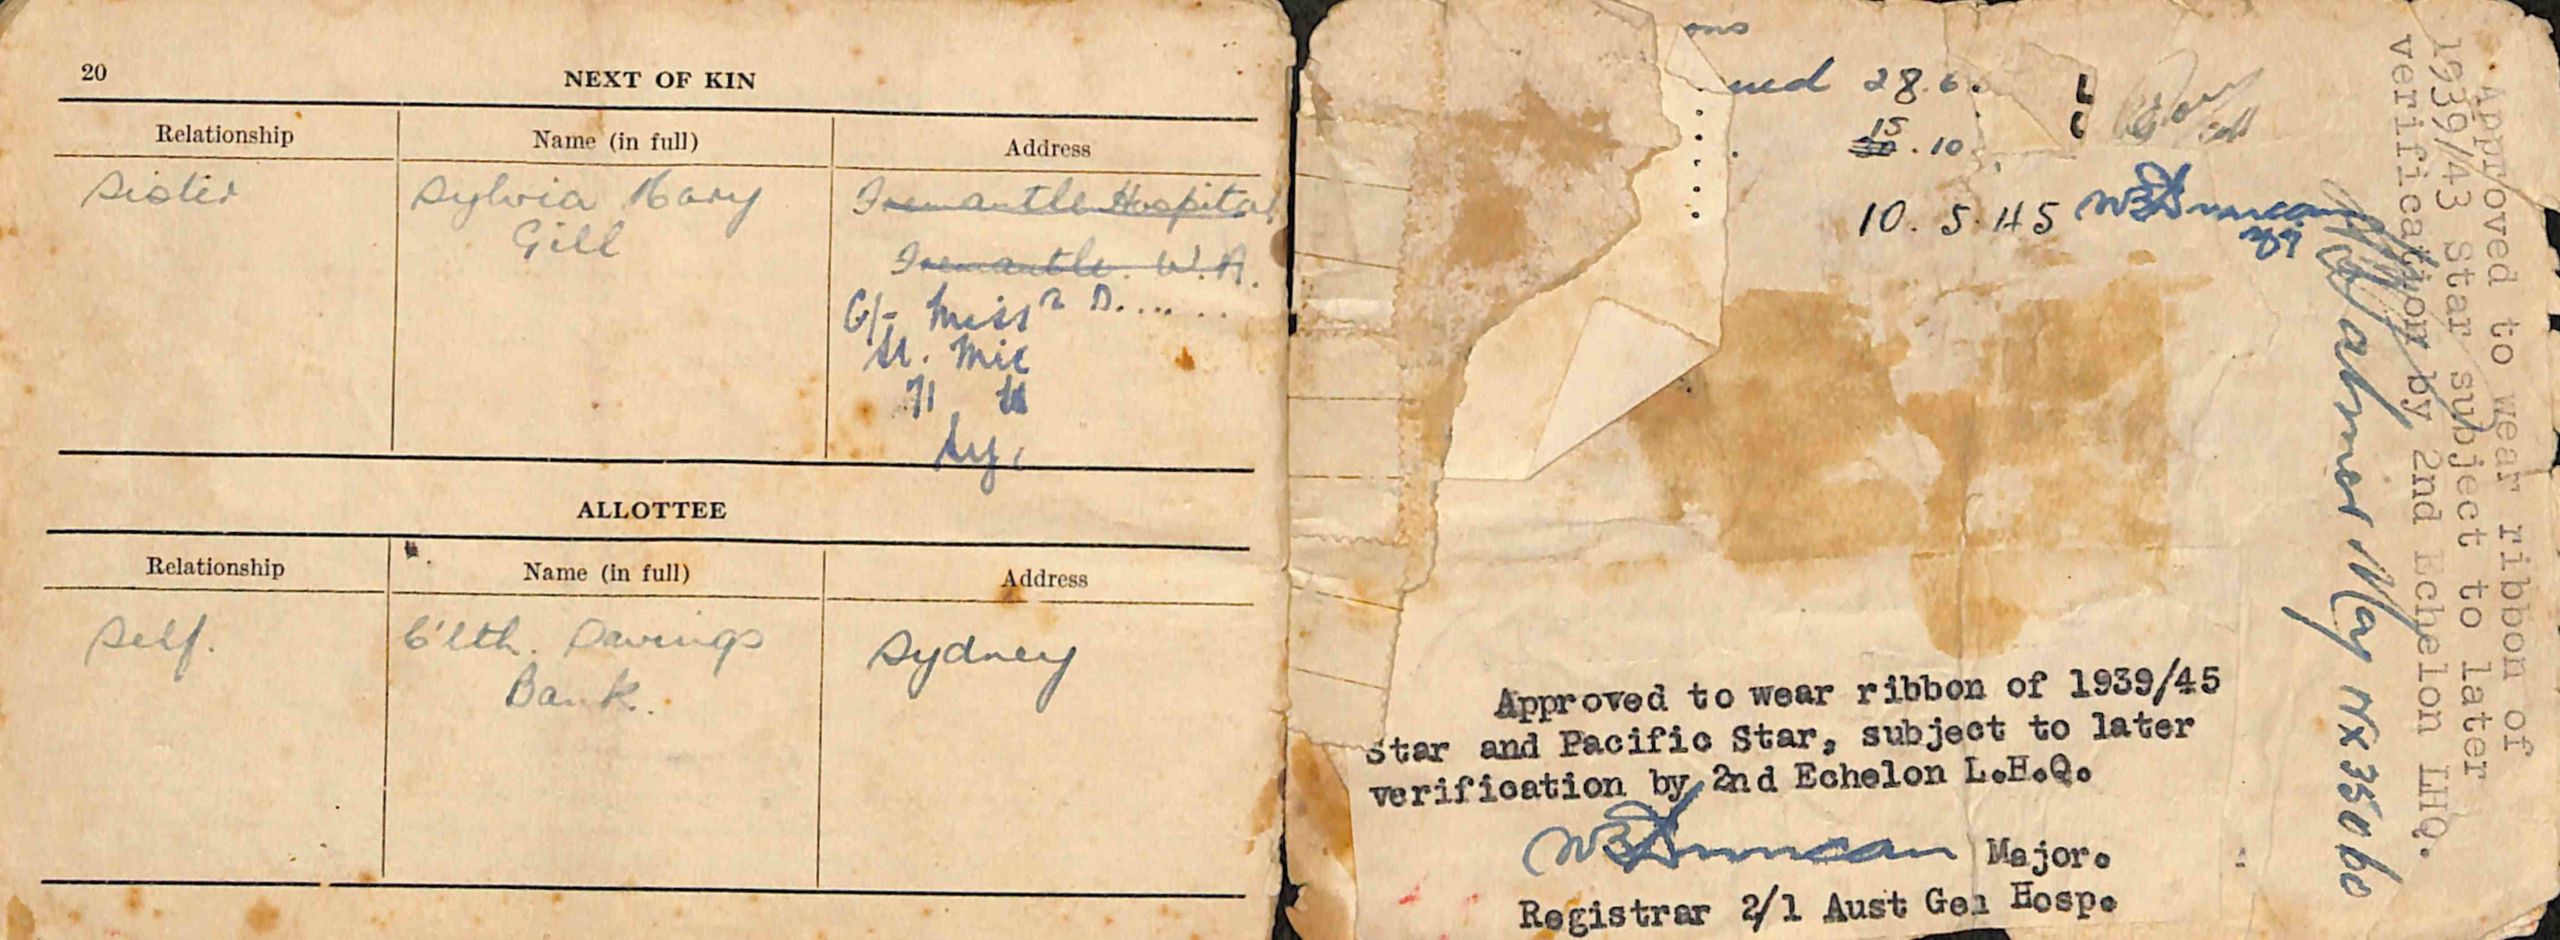 20
NEXT OF KIN
Relationship
Name (in full)
Address
Sister
Sylvia Mary
Gill
Fremantle Hospital
Fremantle. W.A.
C/- Miss D.... ..
St. Mic
71
Sy
ALLOTTEE
Relationship
Name (in full)
Address
Self.
C'lth. Savings
Bank.
Sydney
ons
ued 28.6.
15
30.10
10.5.45 WB Duncan
Approved to wear ribbon of 1939/45
Star and Pacific Star, subject to later
verification by 2nd Echelon L.H.Q.
WB Duncan Major.
Registrar 2/1 Aust Gen Hosp.
Approved to wear ribbon of
1939/43 Star subject to later
verification by 2nd Echelon LHQ.
Maj NX35060